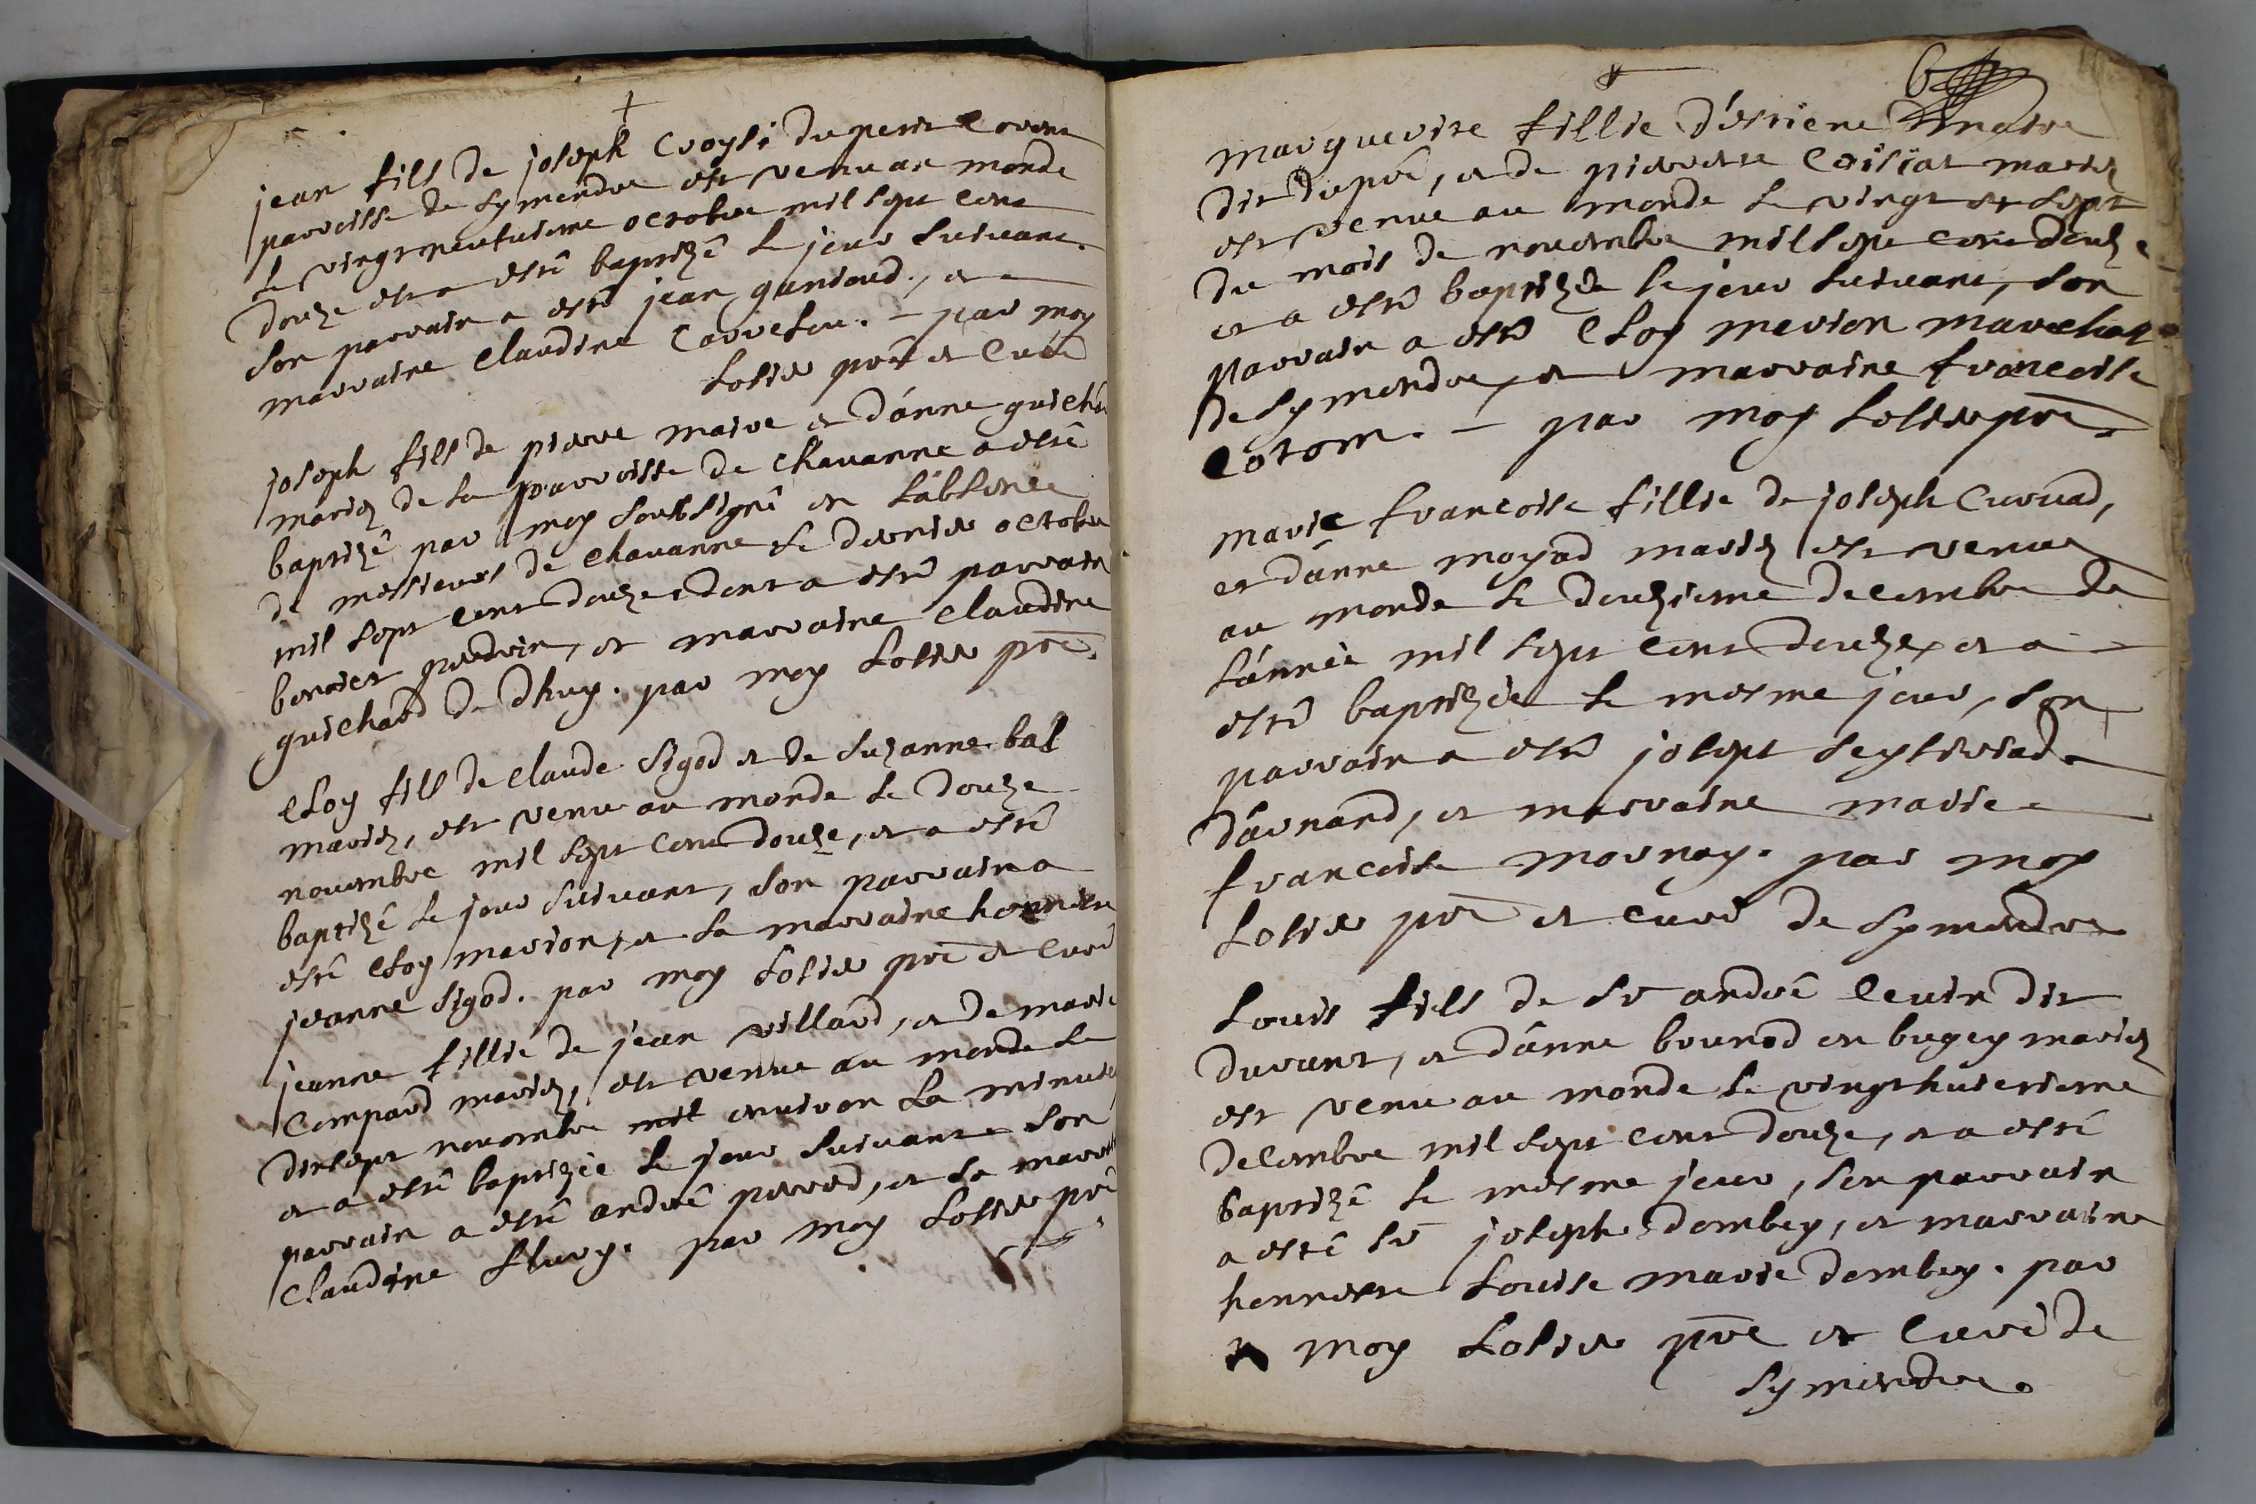 jean fils de joseph Croysi du petit
parroisse de symendre est venu au monde
le vingtneufuieme octobre mil sept cent
douze et a esté baptizé le jour suiuant.
son parrain a esté jean gandoud, et
marraine claudine Carrelou. – par moy
Losier prē et Curé
joseph fils de pierre maire et d'anne guichar
mariez de la parroisse de chauanne a esté
baptizé par moy soubsigné en l'absence
de messieurs de chauanne le dernier octobre
mil sept cent douze dont a esté parrain
perdrix, et marraine claudine
guichard de dhuy. par moy Losier prē.
eloy fils de claude sigod et de suzanne bal
mariez, est venu au monde le douze
nouembre mil sept cent douze, et a esté
baptizé le jour suiuant, son parrain a
esté eloy marion, et la marraine
jeanne sigod. par moy Losier prē et Curé
jeanne fillie de jean villard, et de marie
Compard mariez, est venue au monde le
dixsept nouembre enuiron la minuit
et a esté baptizée le jour suiuant son
parrain a esté andré perrod, et la marraine
claudine flury. par moy Losier prē
6
marguerite fillie d'estiene maire
dit dupré, et de pierrette Coisiat mariez
est venue au monde le vingt et sept
du mois de nouembre mil sept cent douze
et a esté baptizée le jour suiuant, son
parrain a esté eloy merion marechal
de symendre, et marraine francoise
Cotom. – par moy Losier prē.
marie francoise fillie de joseph Curuad,
et d'anne moyad mariez est venue
au monde le douzieme decembre de
l'année mil sept cent douze, et a
esté baptizée le mesme jour, son
parrain a esté josept
d'arnand, et marraine marie
francoise mornay. par moy
Losier prē et curé de symendre
Louis fils de sr andré Cuuin dit
durant, et d'anne brunod en bugey mariez
est venu au monde le vingthuictieme
decembre mil sept cent douze, et a esté
baptizé le mesme jour, son parrain
a esté sr joseph dombey, et marraine
henriette Louise marie dombey. par
moy Losier prē et Curé de
symendre.